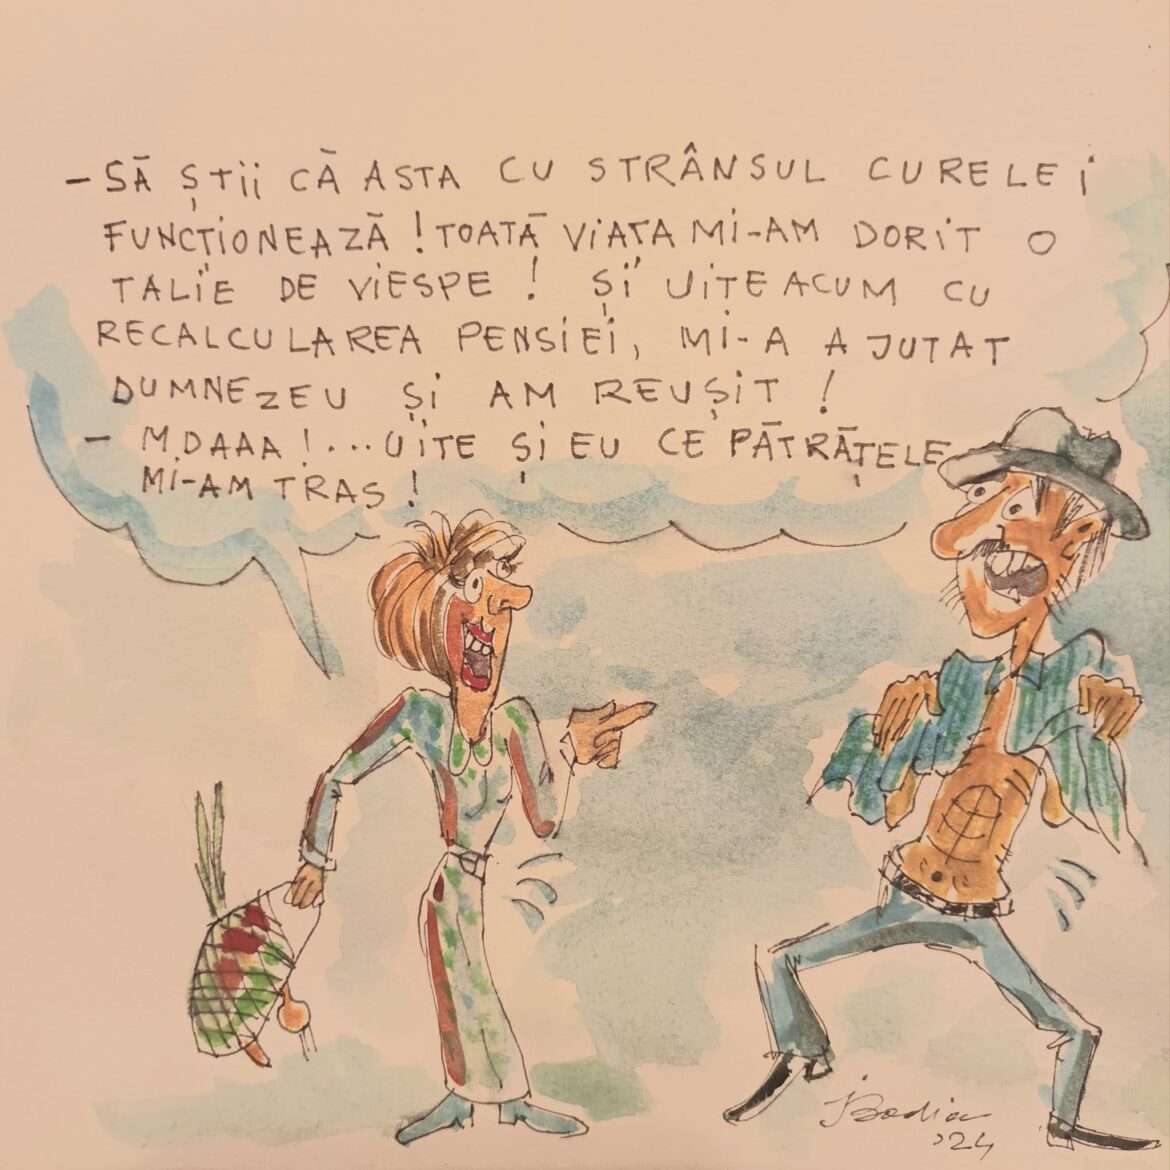 – SĂ ȘTII CĂ ASTA CU STRÂNSUL CURELEI
FUNCȚIONEAZĂ! TOATĂ VIAȚA MI-AM DORIT O
TALIE DE VIESPE! ȘI UITE ACUM CU
RECALCULAREA PENSIEI, MI-A AJUTAT
DUMNEZEU ȘI AM REUȘIT!
– M.DAAA!...UITE ȘI EU CE PĂTRĂȚELE
MI-AM TRAS!
'24